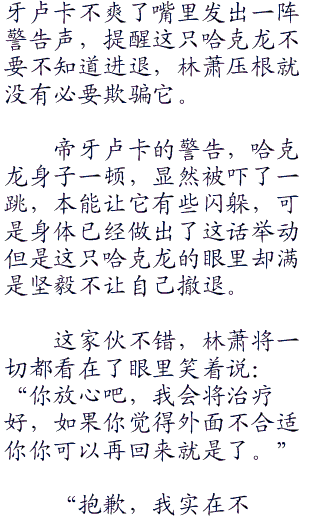 牙卢卡不爽了嘴里发出一阵
警告声，提醒这只哈克龙不
要不知道进退，林萧压根就
没有必要欺骗它。
帝牙卢卡的警告，哈克
龙身子一顿，显然被吓了一
跳，本能让它有些闪躲，可
是身体已经做出了这话举动
但是这只哈克龙的眼里却满
是坚毅不让自己撤退。
这家伙不错，林萧将一
切都看在了眼里笑着说：
“你放心吧，我会将治疗
好，如果你觉得外面不合适
你你可以再回来就是了。”
“抱歉，我实在不